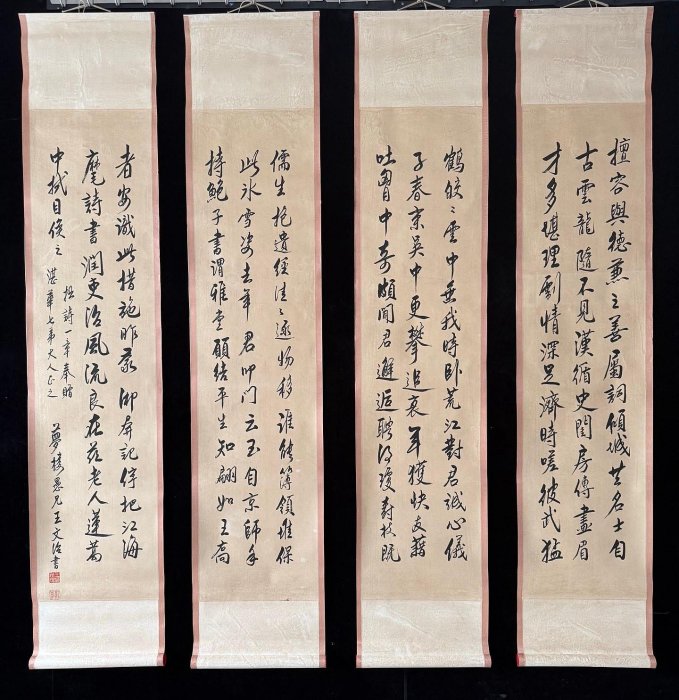 擅容與德兼之善屬詞傾城共名士自
古雲龍隨不見漢循史閨房傳畫眉
才多堪理劇情深足濟時嗟彼武猛
鶴皎々雲中垂我時卧荒江對君誠心儀
子春來吳中更攀追衰年獲快友藉
吐胸中奇頗聞君邂逅聘得瓊壽枝既
儒生抱遺經佳々逐物移誰能簿領堆保
此冰雪姿去年君叩門云玉自京師手
持鮑子書謂雅堂願結平生知翩如王高
者安識此措施昨蒙御奔記倅把江海
麾詩書潤吏治風流良在茲老人蓬蒿
中拭目俟之
拙詩一章奉贈
湛華七弟大人正之
夢樓愚兄王文治書